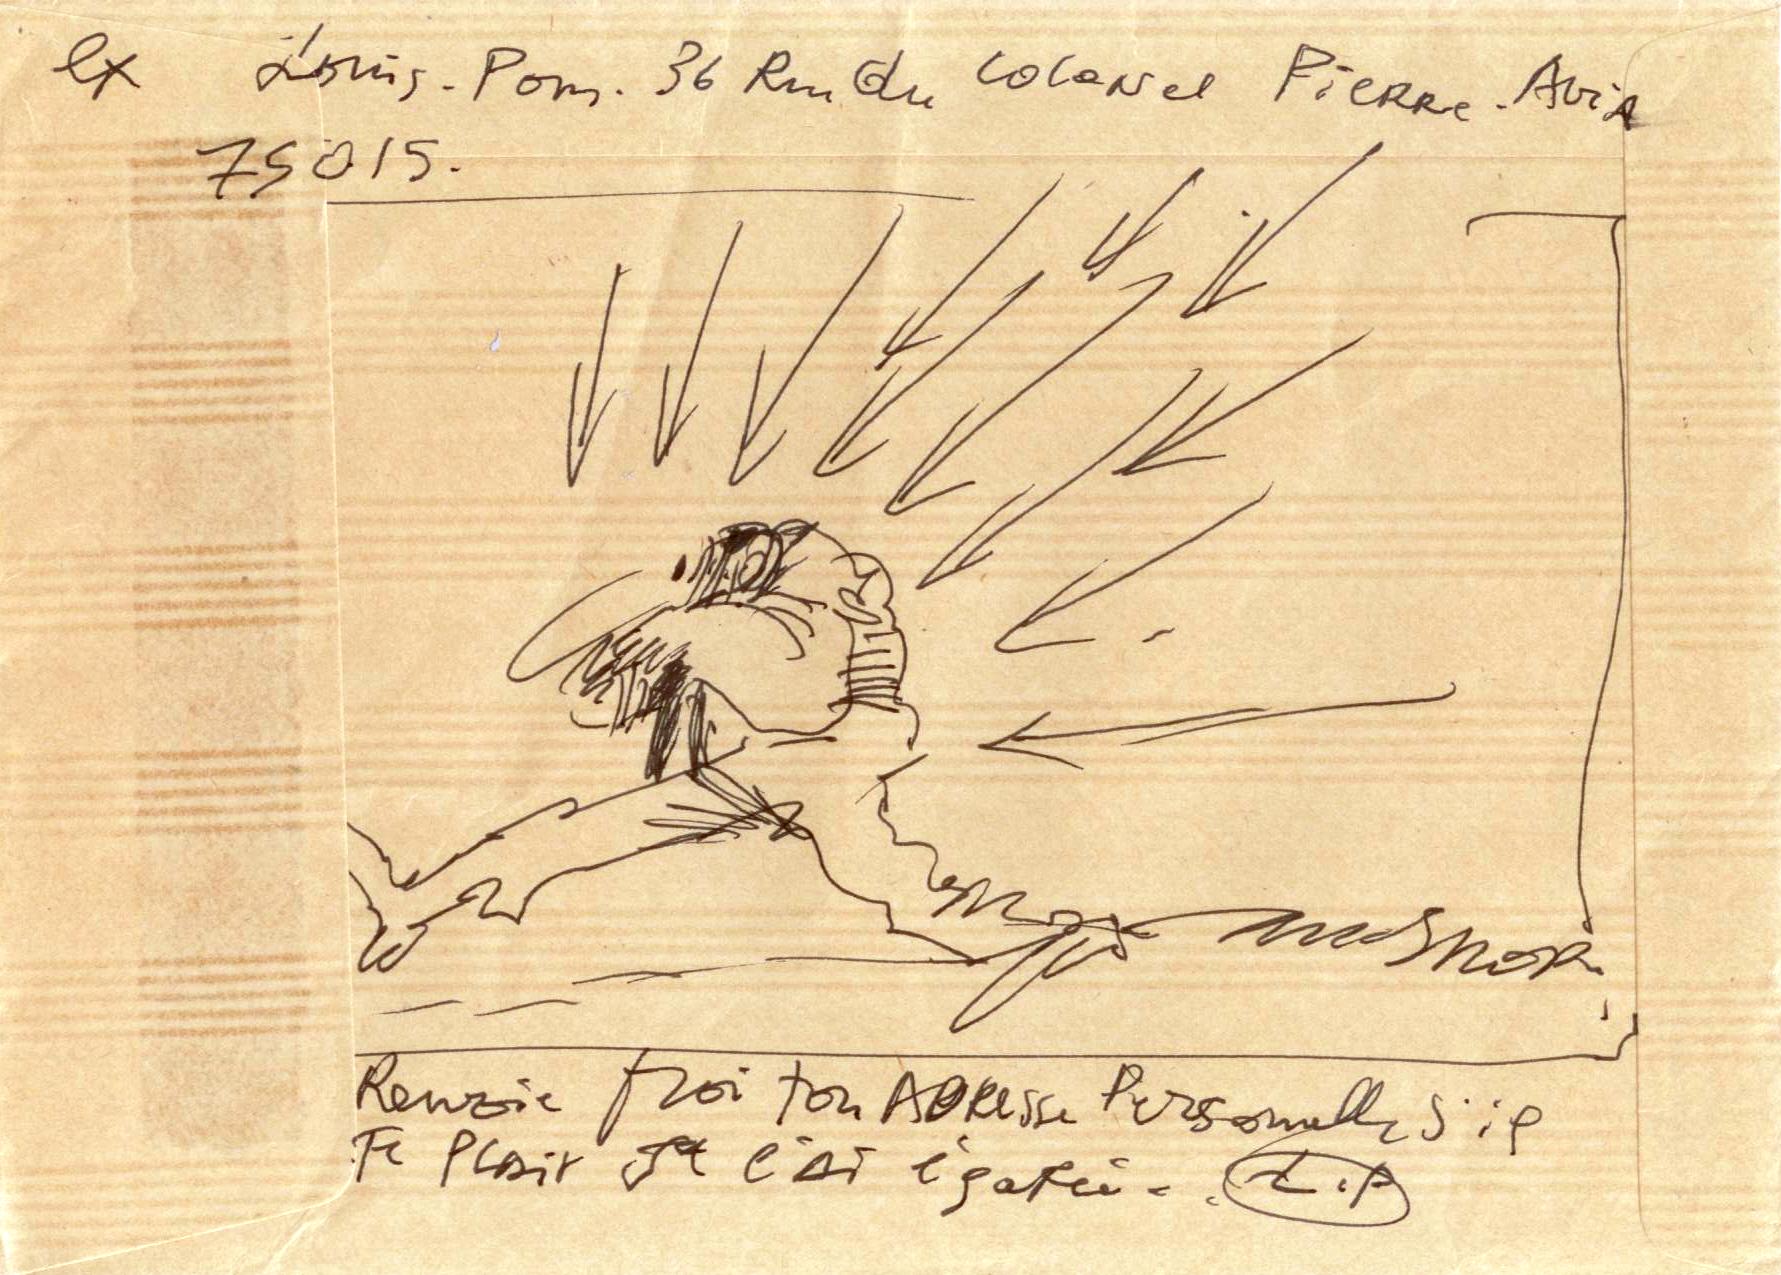 ex Louis-Pons. 36 Rue du colonel Pierre. Avia
75015.
Renvoie moi ton ADResse Personnelle, s'il
Te Plait Je l'ai égarée. L.P